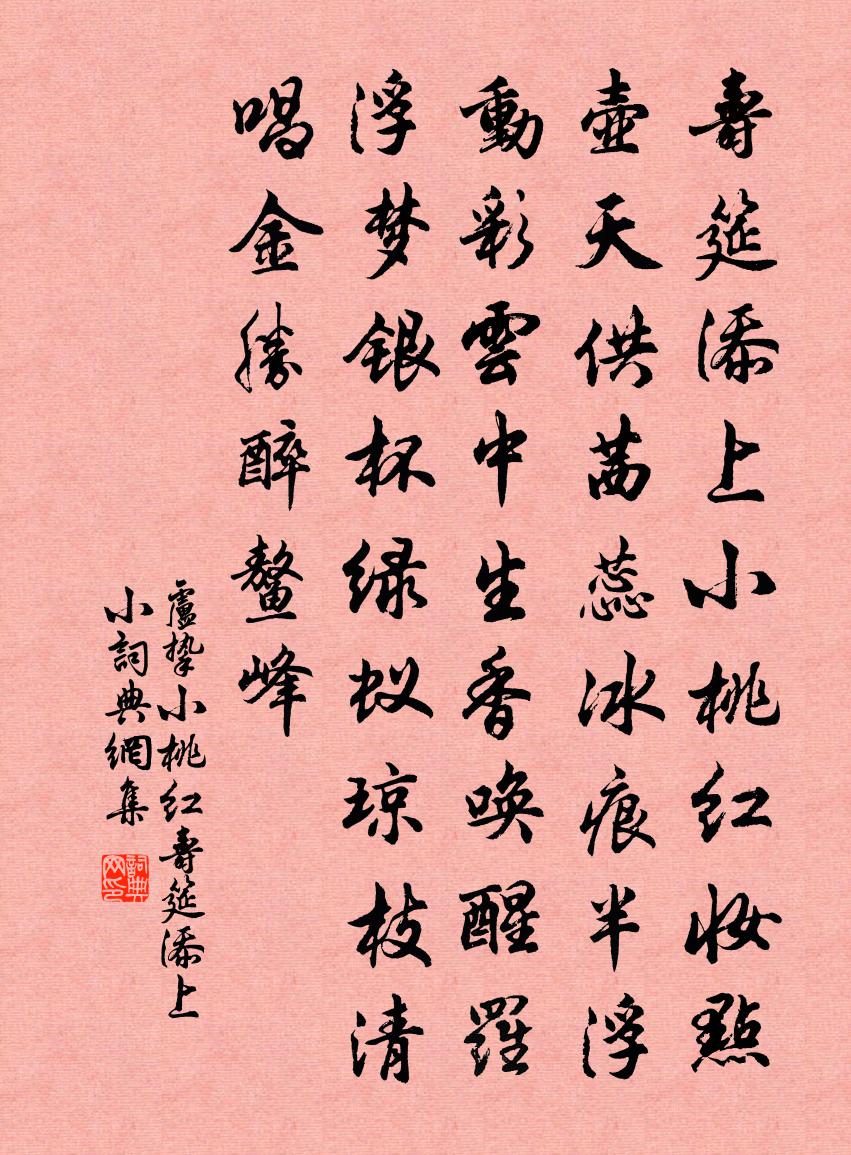 壽筵添上小桃红妆點
壺天供茜蕊冰痕半浮
動彩雲中生香唤醒羅
浮梦銀杯绿蚁琼枝清
唱金勝醉鳌峰
盧摯小桃红壽筵添上
小詞典網集
詞典网印